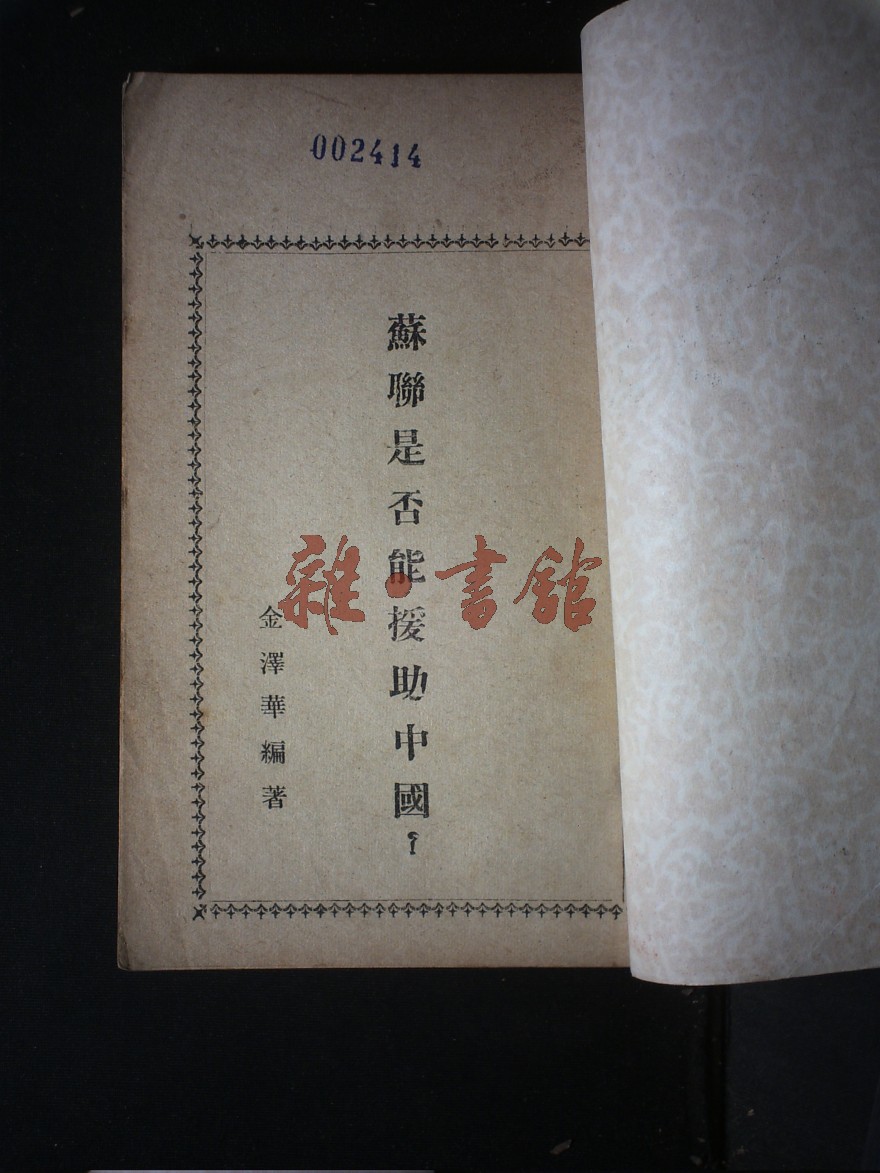 002414
蘇聯是否能援助中國？
金澤華編著
雜·書館